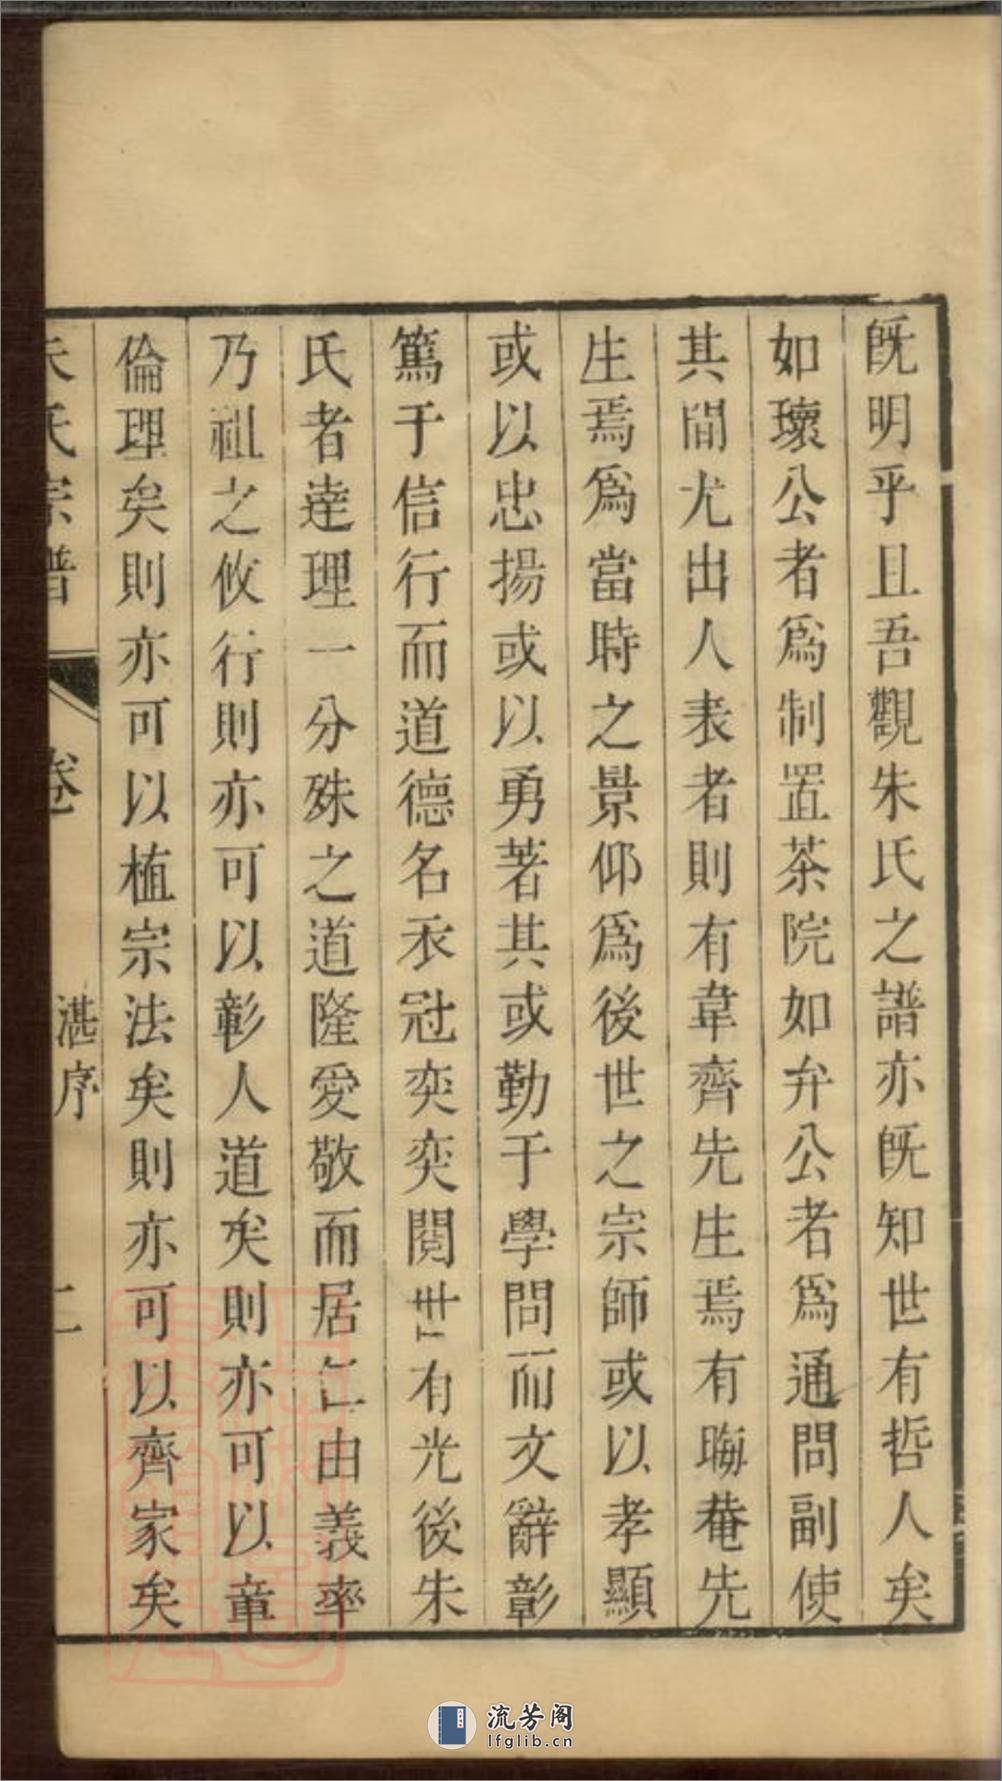 既明乎且吾觀朱氏之譜亦既知世有哲人矣
如瓌公者爲制置茶院如弁公者爲通問副使
其間尤出人表者則有韋齊先生焉有晦菴先
生焉爲當時之景仰爲後世之宗師或以孝顯
或以忠揚或以勇著其或勤于學問而文辭彰
篤于信行而道德名衣冠奕奕閥世有光後朱
氏者達理一分殊之道隆愛敬而居仁由義率
乃祖之攸行則亦可以彰人道矣則亦可以章
倫理矣則亦可以植宗法矣則亦可以齊家矣
朱氏宗譜 卷 湛序 二
流芳阁
lfglib.cn